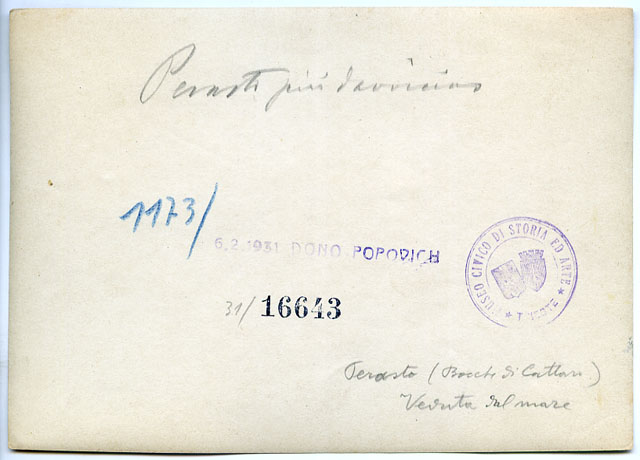 Perasto più da vicino
1173/
6.2.1931 DONO POPOVICH
MUSEO CIVICO DI STORIA ED ARTE
* TRIESTE *
31/ 16643
Perasto (Bocche di Cattaro)
Veduta dal mare